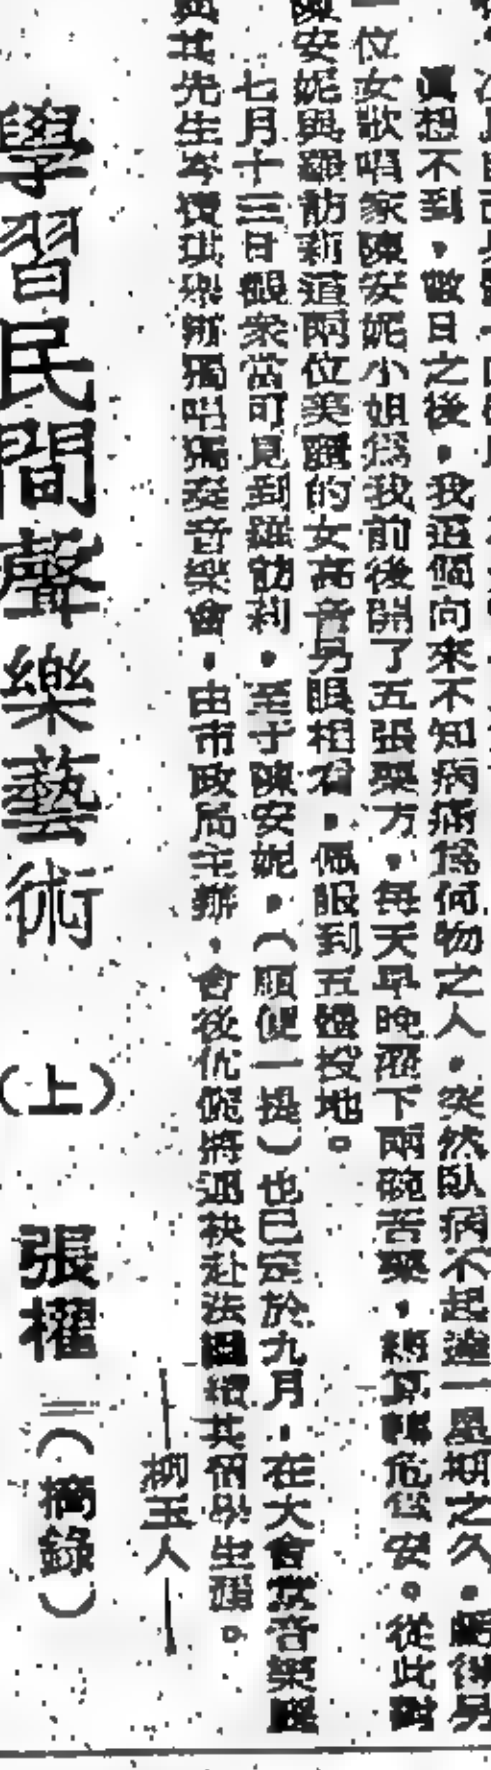 真想不到，數日之後，我這個向來不知病痛為何物之人，突然臥病不起達一星期之久，幸得另
一位女歌唱家陳安妮小姐為我前後開了五張藥方，每天早晚灌下兩碗苦藥，總算轉危為安。從此對
陳安妮與羅舫莉這兩位美麗的女高音另眼相看，佩服到五體投地。
七月十三日觀眾當可見到羅舫莉，至于陳安妮，（順便一提）也已定於九月，在大會堂音樂廳
與其先生岑
獨唱
音樂會，由市政局主辦，會後伉儷將
赴法
繼續其留學生涯。
——柳玉人——
學習民間聲樂藝術（上）
張權（摘錄）